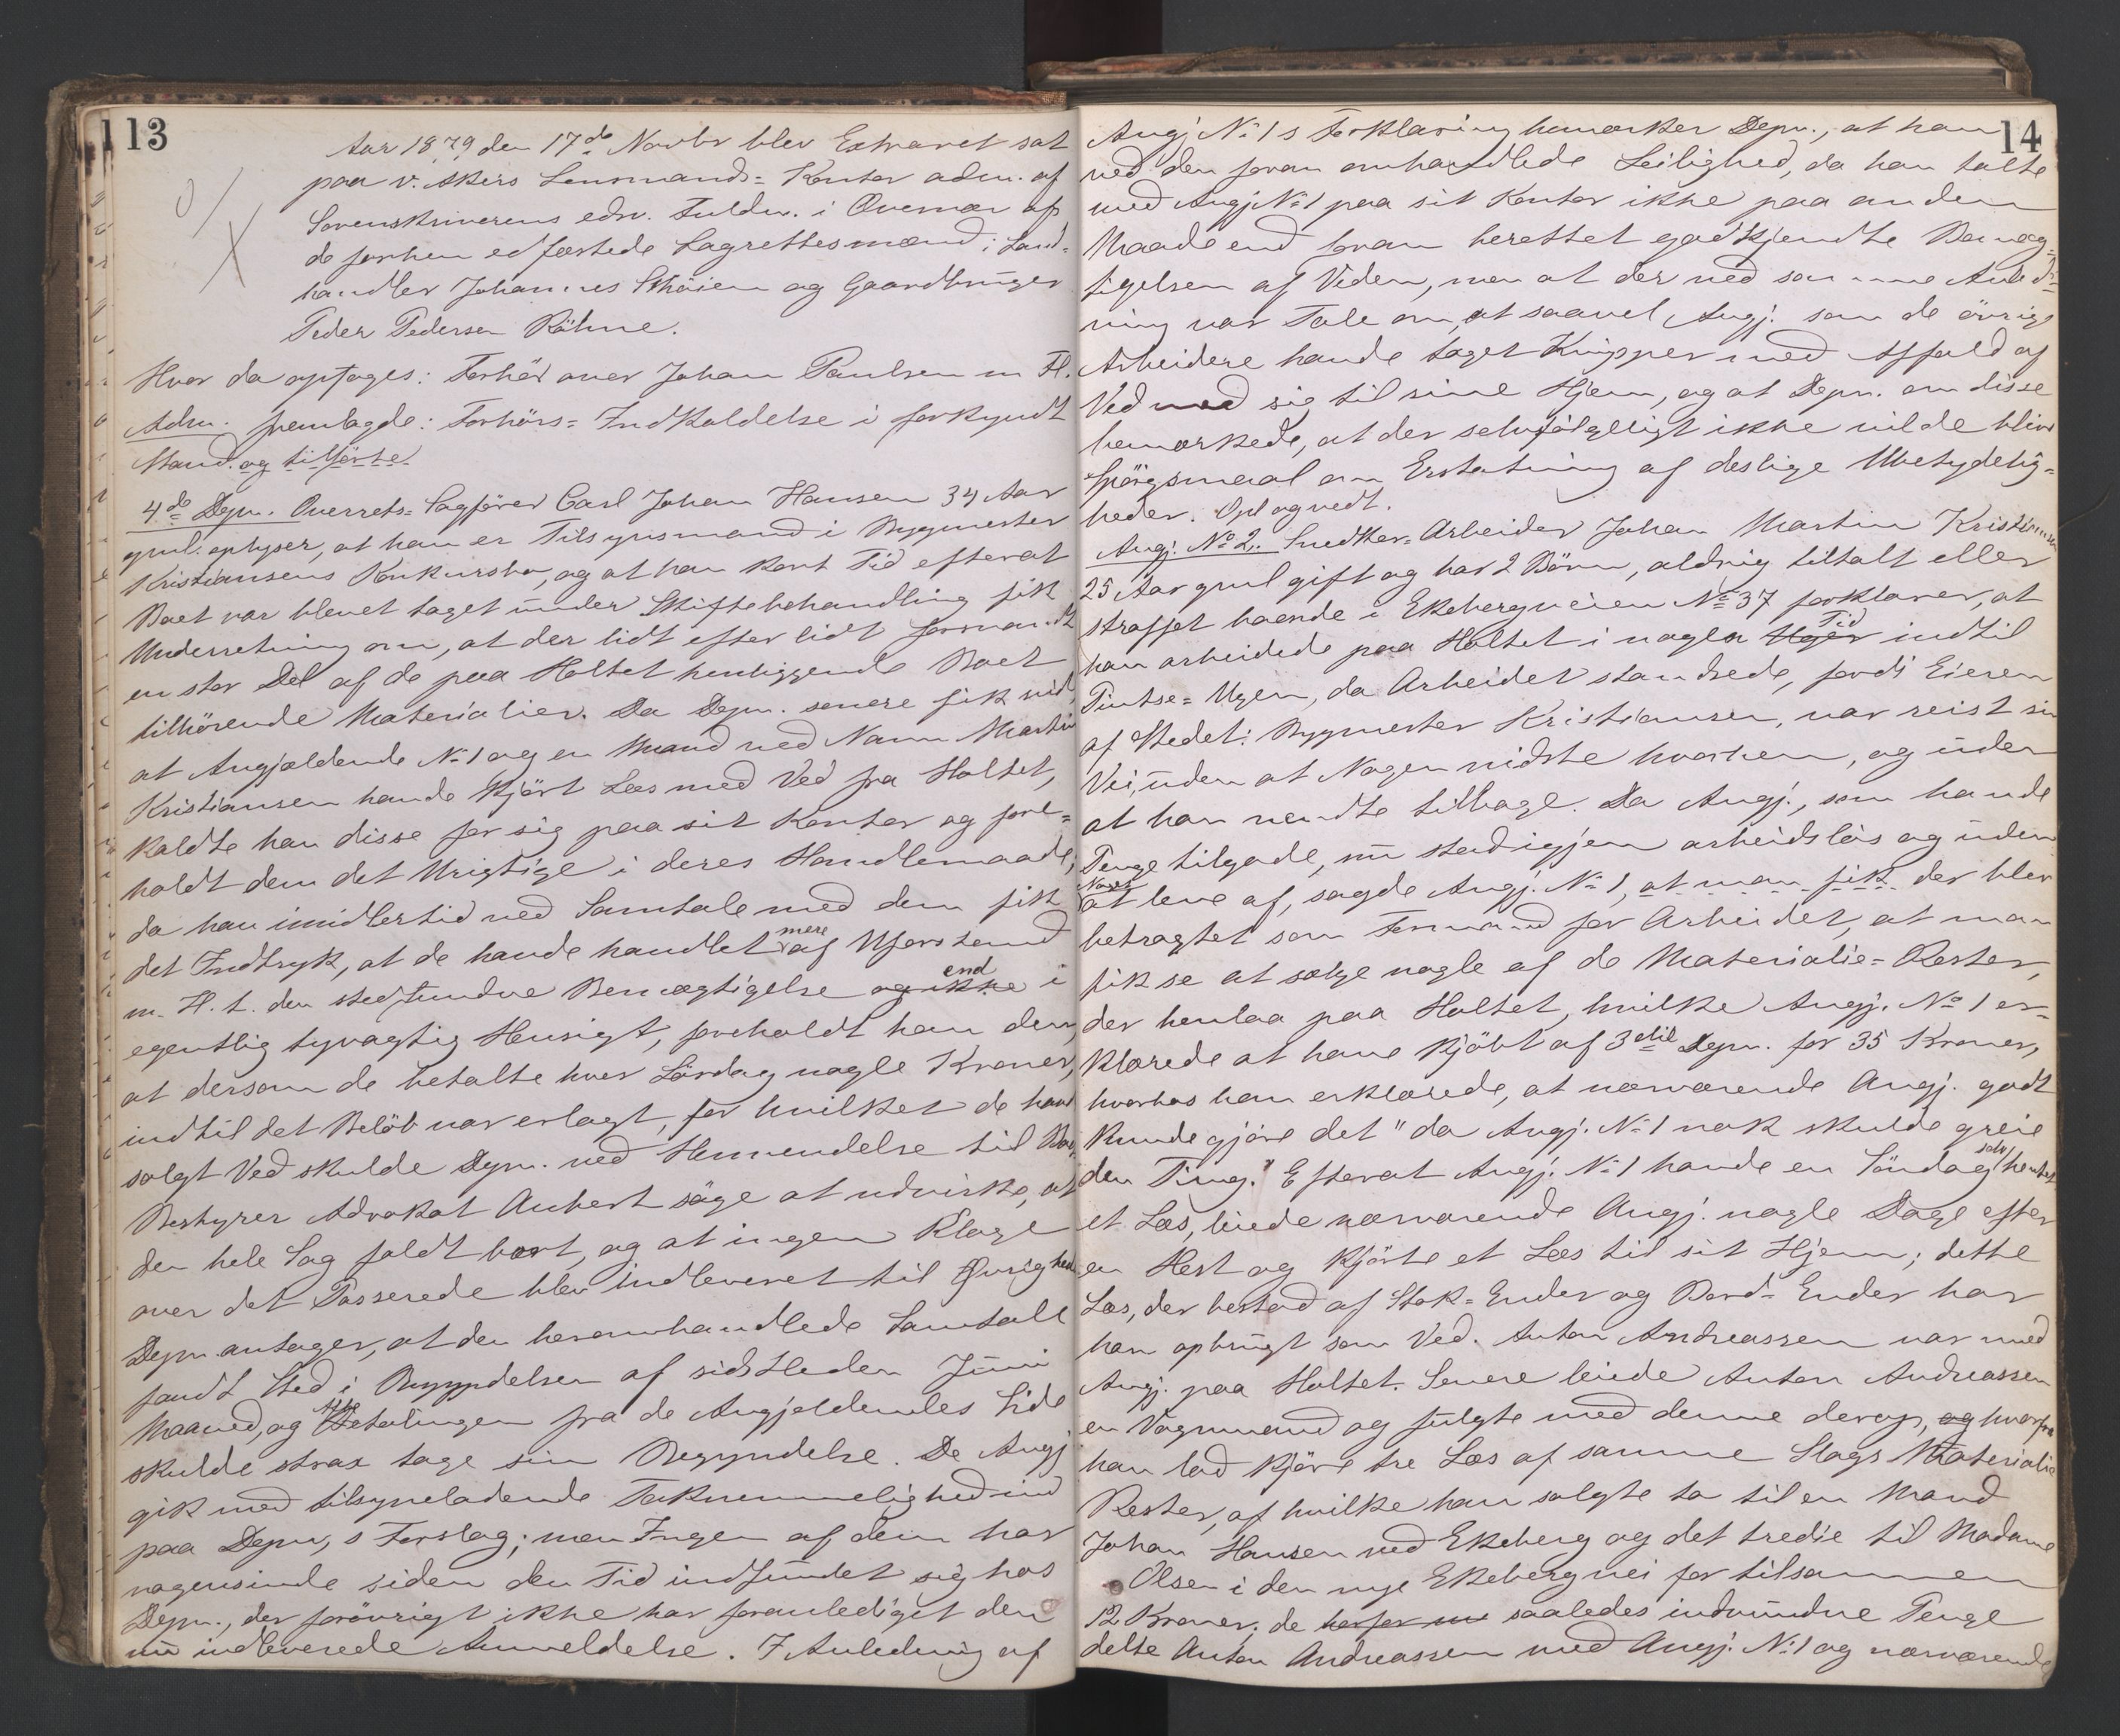 113
Aar 1879 den 17de Novbr blev Extraret sat
paa v. Akers Lensmands=Kontor adm. af
Sorenskriverens edsv. Fuldm. i Overvær af
de forhen edfæstede Lagrettesmænd: Land=
handler Johannes Skøien og Gaardbruger
Peder Pedersen Röhne.
Hvor da optoges: Forhör over Johan Paulsen m Fl.
Adm. fremlagde: Forhörs=Indkaldelse i forkyndt
Stand. og tilförte
4de Depn. Overrets=Sagförer Carl Johan Hansen 34 Aar
gml. oplyser, at han er Tilsynsmand i Bygmester
Kristiansens Konkursbo, og at han kort Tid efterat
Boet var blevet taget under Skiftebehandling fik
Underretning om, at der lidt efter lidt forsvandt
en stor Del af de paa Holtet henliggende Boet
tilhörende Materialier. Da Depn. senere fik vide,
at Angjældende No 1 og en Mand ved Navn Martin
Kristiansen havde kjört Læs med Ved fra Holtet,
kaldte han disse for sig paa sit Kontor og fore=
holdt dem det Urigtige i deres Handlemaade;
da han imidlertid ved Samtale med dem fik
det Indtryk, at de havde handlet mere af Uforstand
m. H. t. den stedfundne Bemægtigelse og ikke end i
egentlig tyvagtig Hensigt, foreholdt han dem,
at dersom de betalte hver Lördag nogle Kroner,
indtil det Belöb var erlagt, for hvilket de havde
solgt Ved skulde Depn. ved Henvendelse til Bo
Bestyrer Advokat Aubert söge at udvirke, at
den hele Sag faldt bort, og at ingen Klage
over det Passerede blev indleveret til Övrigheden
Depn. antager, at den heromhandlede Samtale
fandt Sted i Begyndelsen af sidstleden Juni
Maaned, og Betalingen fra de Angjeldendes Side
skulde strax tage sin Begyndelse. De Angj
gik med tilsyneladende Taknemmelighed ind
paa Depn,s Forslag; men Ingen af dem har
nogensinde siden den Tid indfundet sig hos
Depn., der forövrigt ikke har foranlediget den
nu indleverede Anmeldelse. I Anledning af
14
Angj No 1s Forklaring bemærker Depn., at han
ved den foran omhandlede Leilighed, da han talte
med Angj No 1 paa sit Kontor ikke paa anden
Maade end foran berettet godkjendte Bemæg=
tigelsen af Veden, men at der ved samme Anled=
ning var Tale om, at saavel Angj. som de övrige
Arbeidere havde taget Knipper med Affald af
Ved med sig til sine Hjem, og at Depn. om disse
bemærkede, at der selvfölgeligt ikke vilde blive
Spörgsmaal om Erstatning af deslige Ubetydelig=
heder. Opl og vedt.
Angj. No 2. Snedker=Arbeider Johan Martin Kristiansen
25 Aar gml gift og har 2 Börn, aldrig tiltalt eller
straffet boende i Ekebergveien No 37 forklarer, at
han arbeidede paa Holtet i nogen Uger Tid indtil
Pintse=Ugen, da Arbeidet standsede, fordi Eieren
af Stedet: Bygmester Kristiansen, var reist sin
Vei, uden at Nogen vidste hvorhen, og uden
at han vendte tilbage. Da Angj., som havde
Penge tilgode, nu stod igjen arbeidslös og uden
Noget at leve af, sagde Angj. No 1, at man fik der blev
betragtet som Formand for Arbeidet, at man
fik se at sælge nogle af de Materialie=Rester,
der henlaa paa Holtet, hvilke Angj. No 1 er=
klærede at have kjöbt af 3die Depn. for 35 Kroner,
hvorhos han erklærede, at nærværende Angj. godt
kunde gjöre det "da Angj. No 1 nok skulde greie
den Ting." Efterat Angj. No 1 havde en Söndag selv hentet
et Læs, leiede nærværende Angj. nogle Dage efter
en Hest og kjörte et Læs til sit Hjem; dette
Læs, der bestod af Stok=Ender og Bord=Ender har
han opbrugt som Ved. Anton Andreassen var med
Angj. paa Holtet. Senere leiede Anton Andreassen
en Vognmand og fulgte med denne derop, og hvorfra
han lod kjöre tre Læs af samme Slags Materialie
Rester, af hvilke han solgte to til en Mand
Johan Hansen ved Ekeberg og det tredie til Madame
Olsen i den nye Ekebergvei for tilsammen
12 Kroner; de saaledes indvundne Penge
delte Anton Andreassen med Angj. No 1 og nærværende